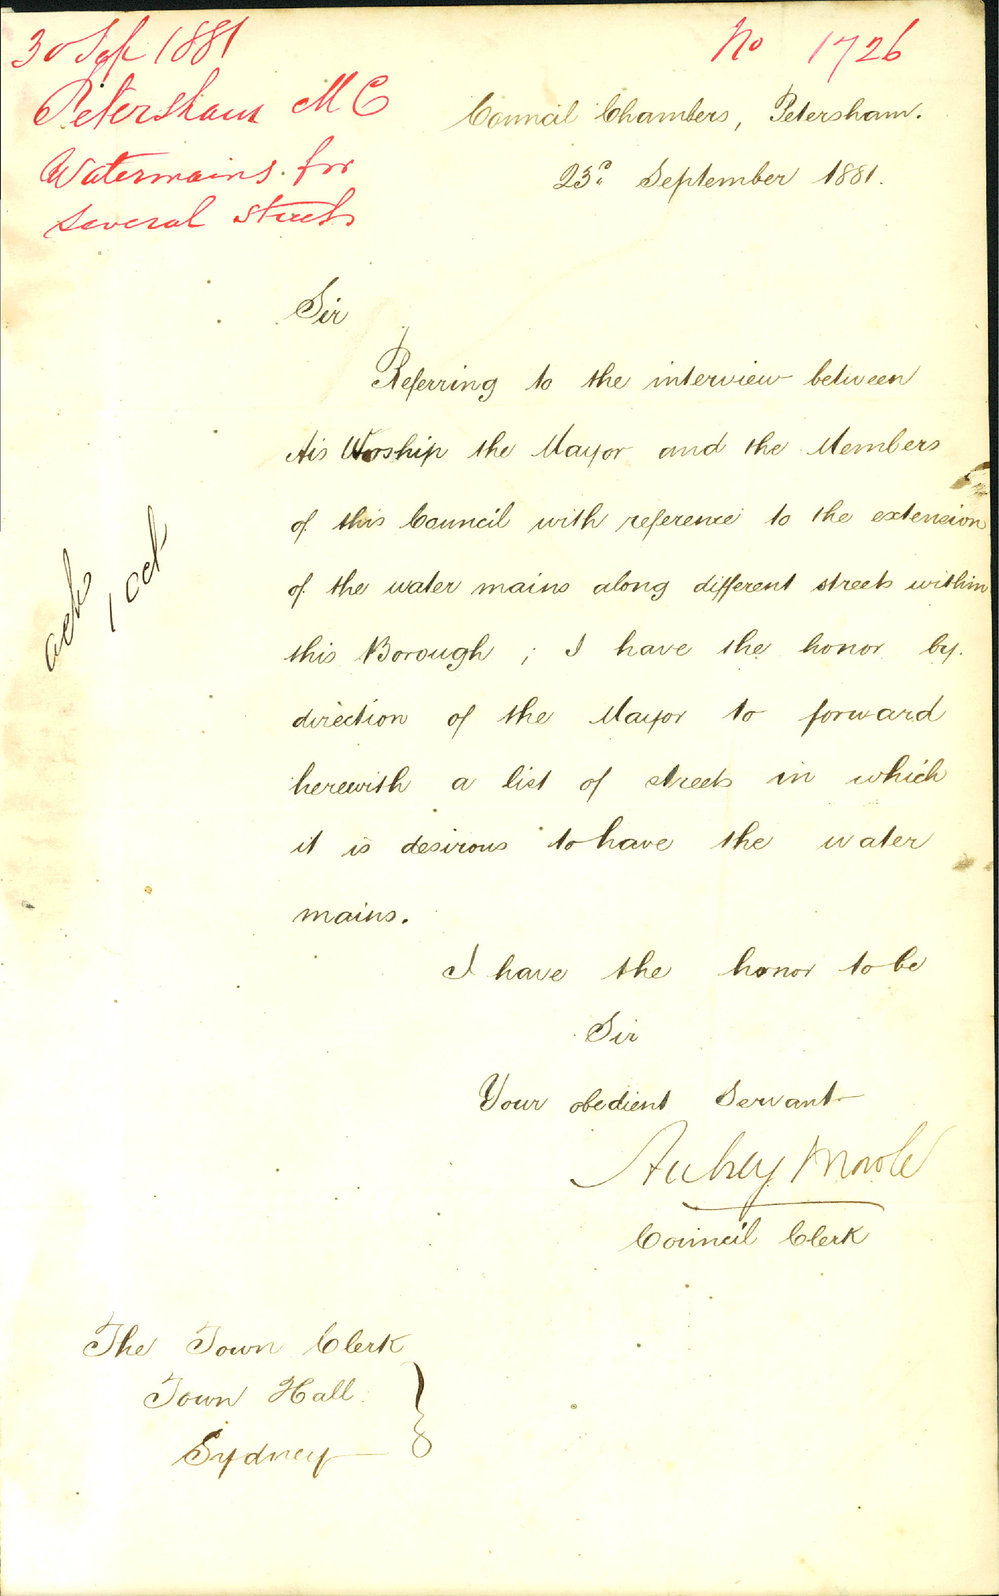 30 Sep 1881
Petersham M C
Watermains for
several streets
No 1726
Council Chambers, Petersham.
23d September 1881.
Sir
Referring to the interview between
His Worship the Mayor and the Members
of this Council with reference to the extension
of the water mains along different streets within
this Borough ; I have the honor by
direction of the Mayor to forward
herewith a list of streets in which
it is desirous to have the water
mains.
I have the honor to be
Sir
Your obedient Servant
Aubrey
Council Clerk
ack
1 oct
The Town Clerk
Town Hall
Sydney